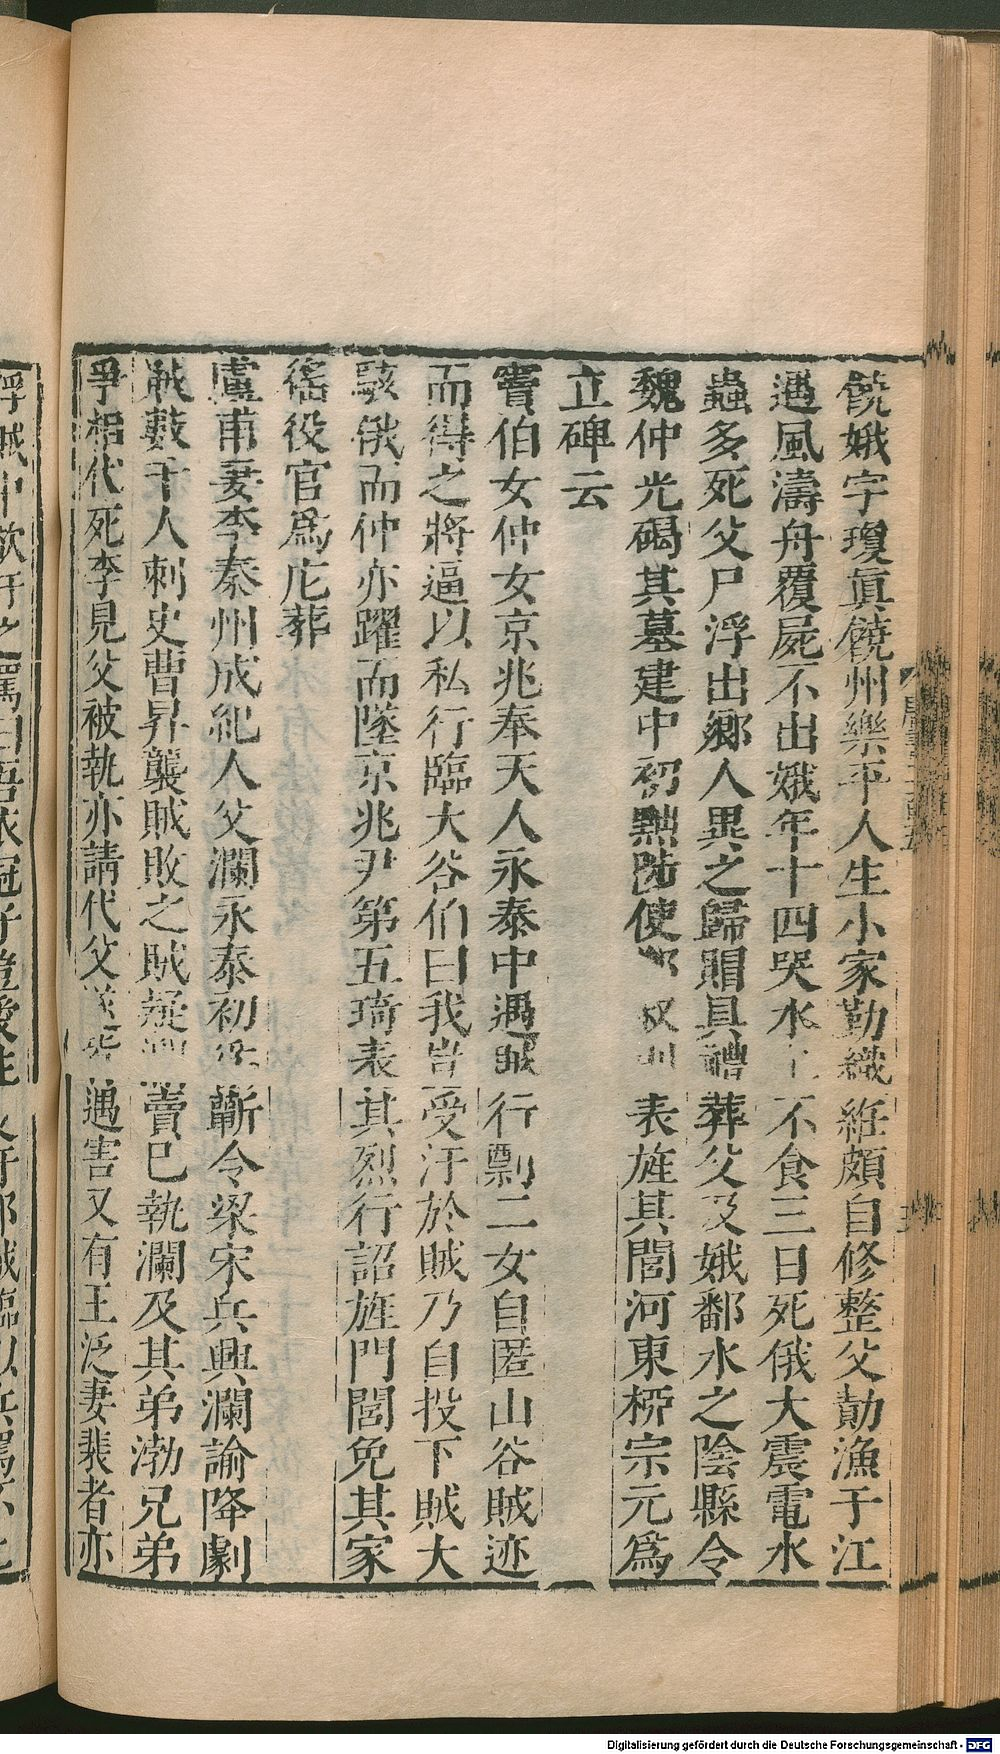 饒娥字瓊眞饒州樂平人生小家勤織紝頗自修整父勣漁于江
遇風濤舟覆屍不出娥年十四哭水上不食三日死俄大震電水
蟲多死父尸浮出鄉人異之歸賵具禮葬父及娥鄱水之陰縣令
魏仲光碣其墓建中初黜陟使鄭叔則表旌其閭河東柳宗元爲
立碑云
竇伯女仲女京兆奉天人永泰中遇賊行剽二女自匿山谷賊迹
而得之將逼以私行臨大谷伯曰我豈受汙於賊乃自投下賊大
駭俄而仲亦躍而墜京兆尹第五琦表其烈行詔旌門閭免其家
徭役官爲庀葬
盧甫妻李秦州成紀人父瀾永泰初 蘄令梁宋兵興瀾諭降劇
賊數千人刺史曹昇襲賊敗之賊疑 賣已執瀾及其弟渤兄弟
爭相代死李見父被執亦請代父遂 遇害又有王泛妻裴者亦
Digitalisierung gefördert durch die Deutsche Forschungsgemeinschaft - DFG